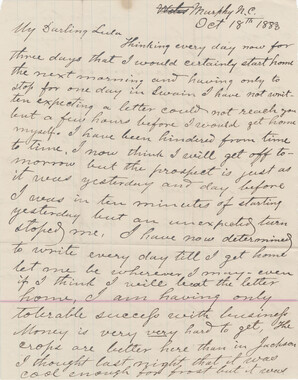 Murphy N.C.
Oct 18th 1883
My Darling Lula
Thinking every day now for
three days that I would certainly start home
the next morning and having only to
stop for one day in Swain I have not writ-
ten expecting a letter could not reach you
but a few hours before I would get home
myself. I have been hindred from time
to time, I now think I will get off to-
morrow but the prospect is just as
it was yesterday and day before
I was in ten minutes of starting
yesterday but an unexpected turn
stoped me. I have now determined
to write every day till I get home
let me be wherever I may - even
if I think I will beat the letter
home, I am having only
tolerable success with business
Money is very very hard to get, the
crops are better here than in Jackson
I thought last night that it was
cool enough for frost but it was